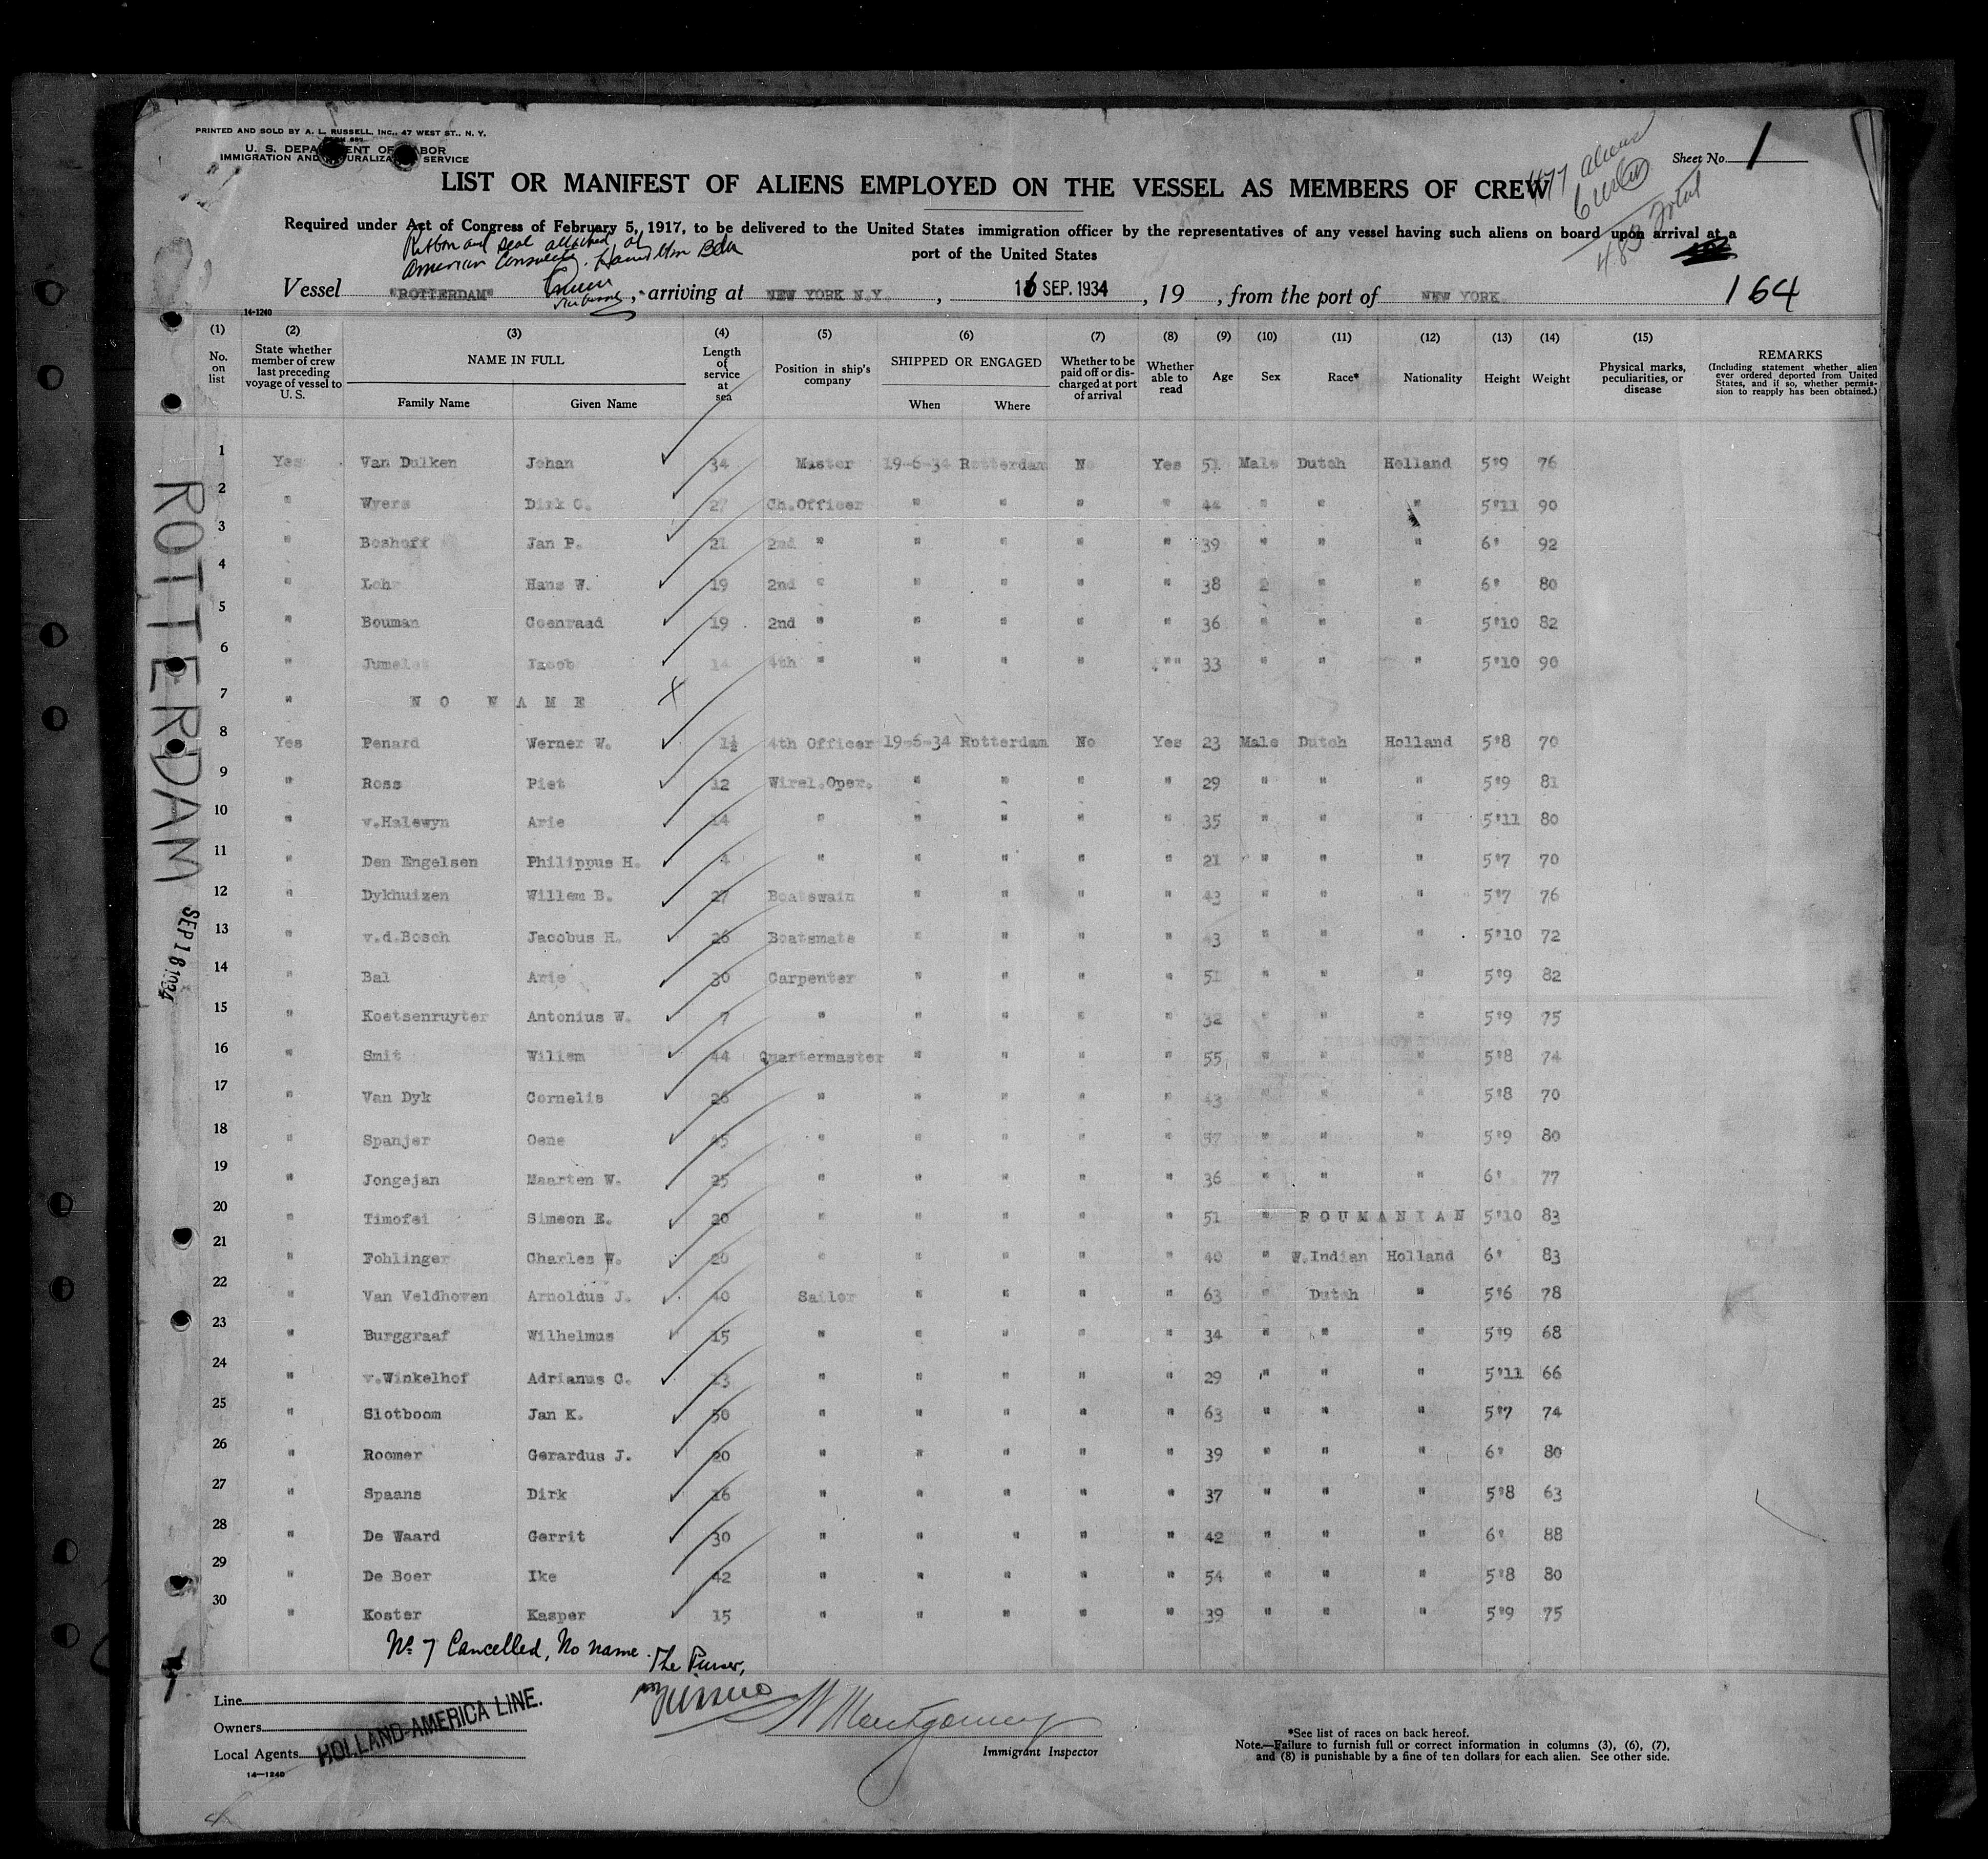 PRINTED AND SOLD BY A. L. RUSSELL, INC., 47 WEST ST., N. Y.
U. S. DEPA ENT OF ABOR
IMMIGRATION AND URALIZA SERVICE
Sheet No. 1
477 aliens
483 Total
LIST OR MANIFEST OF ALIENS EMPLOYED ON THE VESSEL AS MEMBERS OF CREW
Required under Act of Congress of February 5, 1917, to be delivered to the United States immigration officer by the representatives of any vessel having such aliens on board upon arrival at a
port of the United States
Ribbon and seal attached at
American Consulate, Hamilton Bda
Vessel "ROTTERDAM", arriving at NEW YORK N.Y., 16 SEP. 1934, 19 , from the port of NEW YORK. 164
14-1240
(1) (2) (3) (4) (5) (6) (7) (8) (9) (10) (11) (12) (13) (14) (15)
No. on list
State whether member of crew last preceding voyage of vessel to U. S.
NAME IN FULL
Family Name Given Name
Length of service at sea
Position in ship's company
SHIPPED OR ENGAGED
When Where
Whether to be paid off or discharged at port of arrival
Whether able to read
Age Sex Race* Nationality Height Weight
Physical marks, peculiarities, or disease
REMARKS
(Including statement whether alien ever ordered deported from United States, and if so, whether permission to reapply has been obtained.)
1 Yes Van Dulken Johan 34 Master 19-6-34 Rotterdam No Yes 51 Male Dutch Holland 5'9 76
2 " Wyers Dirk C. 27 Ch.Officer " " " " 44 " " " 5'11 90
3 " Boshoff Jan P. 21 2nd " " " " " 39 " " " 6' 92
4 " Lohr Hans W. 19 2nd " " " " " 38 2 " " 6' 80
5 " Bouman Coenraad 19 2nd " " " " " 36 " " " 5'10 82
6 " Jumelet Jacob 14 4th " " " " "" 33 " " " 5'10 90
7 " N O N A M E X
8 Yes Penard Werner W. 1½ 4th Officer 19-6-34 Rotterdam No Yes 23 Male Dutch Holland 5'8 70
9 " Ross Piet 12 Wirel.Oper. " " " " 29 " " " 5'9 81
10 " v.Halewyn Arie 14 " " " " " 35 " " " 5'11 80
11 " Den Engelsen Philippus H. 4 " " " " " 21 " " " 5'7 70
12 " Dykhuizen Willem B. 27 Boatswain " " " " 43 " " " 5'7 76
13 " v.d.Bosch Jacobus H. 26 Boatsmate " " " " 43 " " " 5'10 72
14 " Bal Arie 30 Carpenter " " " " 51 " " " 5'9 82
15 " Koetsenruyter Antonius W. 7 " " " " " 32 " " " 5'9 75
16 " Smit Willem 44 Quartermaster " " " " 55 " " " 5'8 74
17 " Van Dyk Cornelis 26 " " " " " 43 " " " 5'8 70
18 " Spanjer Oene 45 " " " " " 57 " " " 5'9 80
19 " Jongejan Maarten W. 25 " " " " " 36 " " " 6' 77
20 " Timofei Simeon E. 20 " " " " " 51 " R O U M A N I A N 5'10 83
21 " Fohlinger Charles W. 20 " " " " " 40 " W.Indian Holland 6' 83
22 " Van Veldhoven Arnoldus J. 40 Sailor " " " " 63 " Dutch " 5'6 78
23 " Burggraaf Wilhelmus 15 " " " " " 34 " " " 5'9 68
24 " v.Winkelhof Adrianus C. 13 " " " " " 29 " " " 5'11 66
25 " Slotboom Jan K. 50 " " " " " 63 " " " 5'7 74
26 " Roomer Gerardus J. 20 " " " " " 39 " " " 6' 80
27 " Spaans Dirk 16 " " " " " 37 " " " 5'8 63
28 " De Waard Gerrit 30 " " " " " 42 " " " 6' 88
29 " De Boer Ike 42 " " " " " 54 " " " 5'8 80
30 " Koster Kasper 15 " " " " " 39 " " " 5'9 75
ROTTERDAM
SEP 16 1934
No 7 Cancelled, No name. The Purser,
Line
Owners
Local Agents
HOLLAND-AMERICA LINE.
14-1240
W Montgomery
Immigrant Inspector
*See list of races on back hereof.
Note.—Failure to furnish full or correct information in columns (3), (6), (7),
and (8) is punishable by a fine of ten dollars for each alien. See other side.